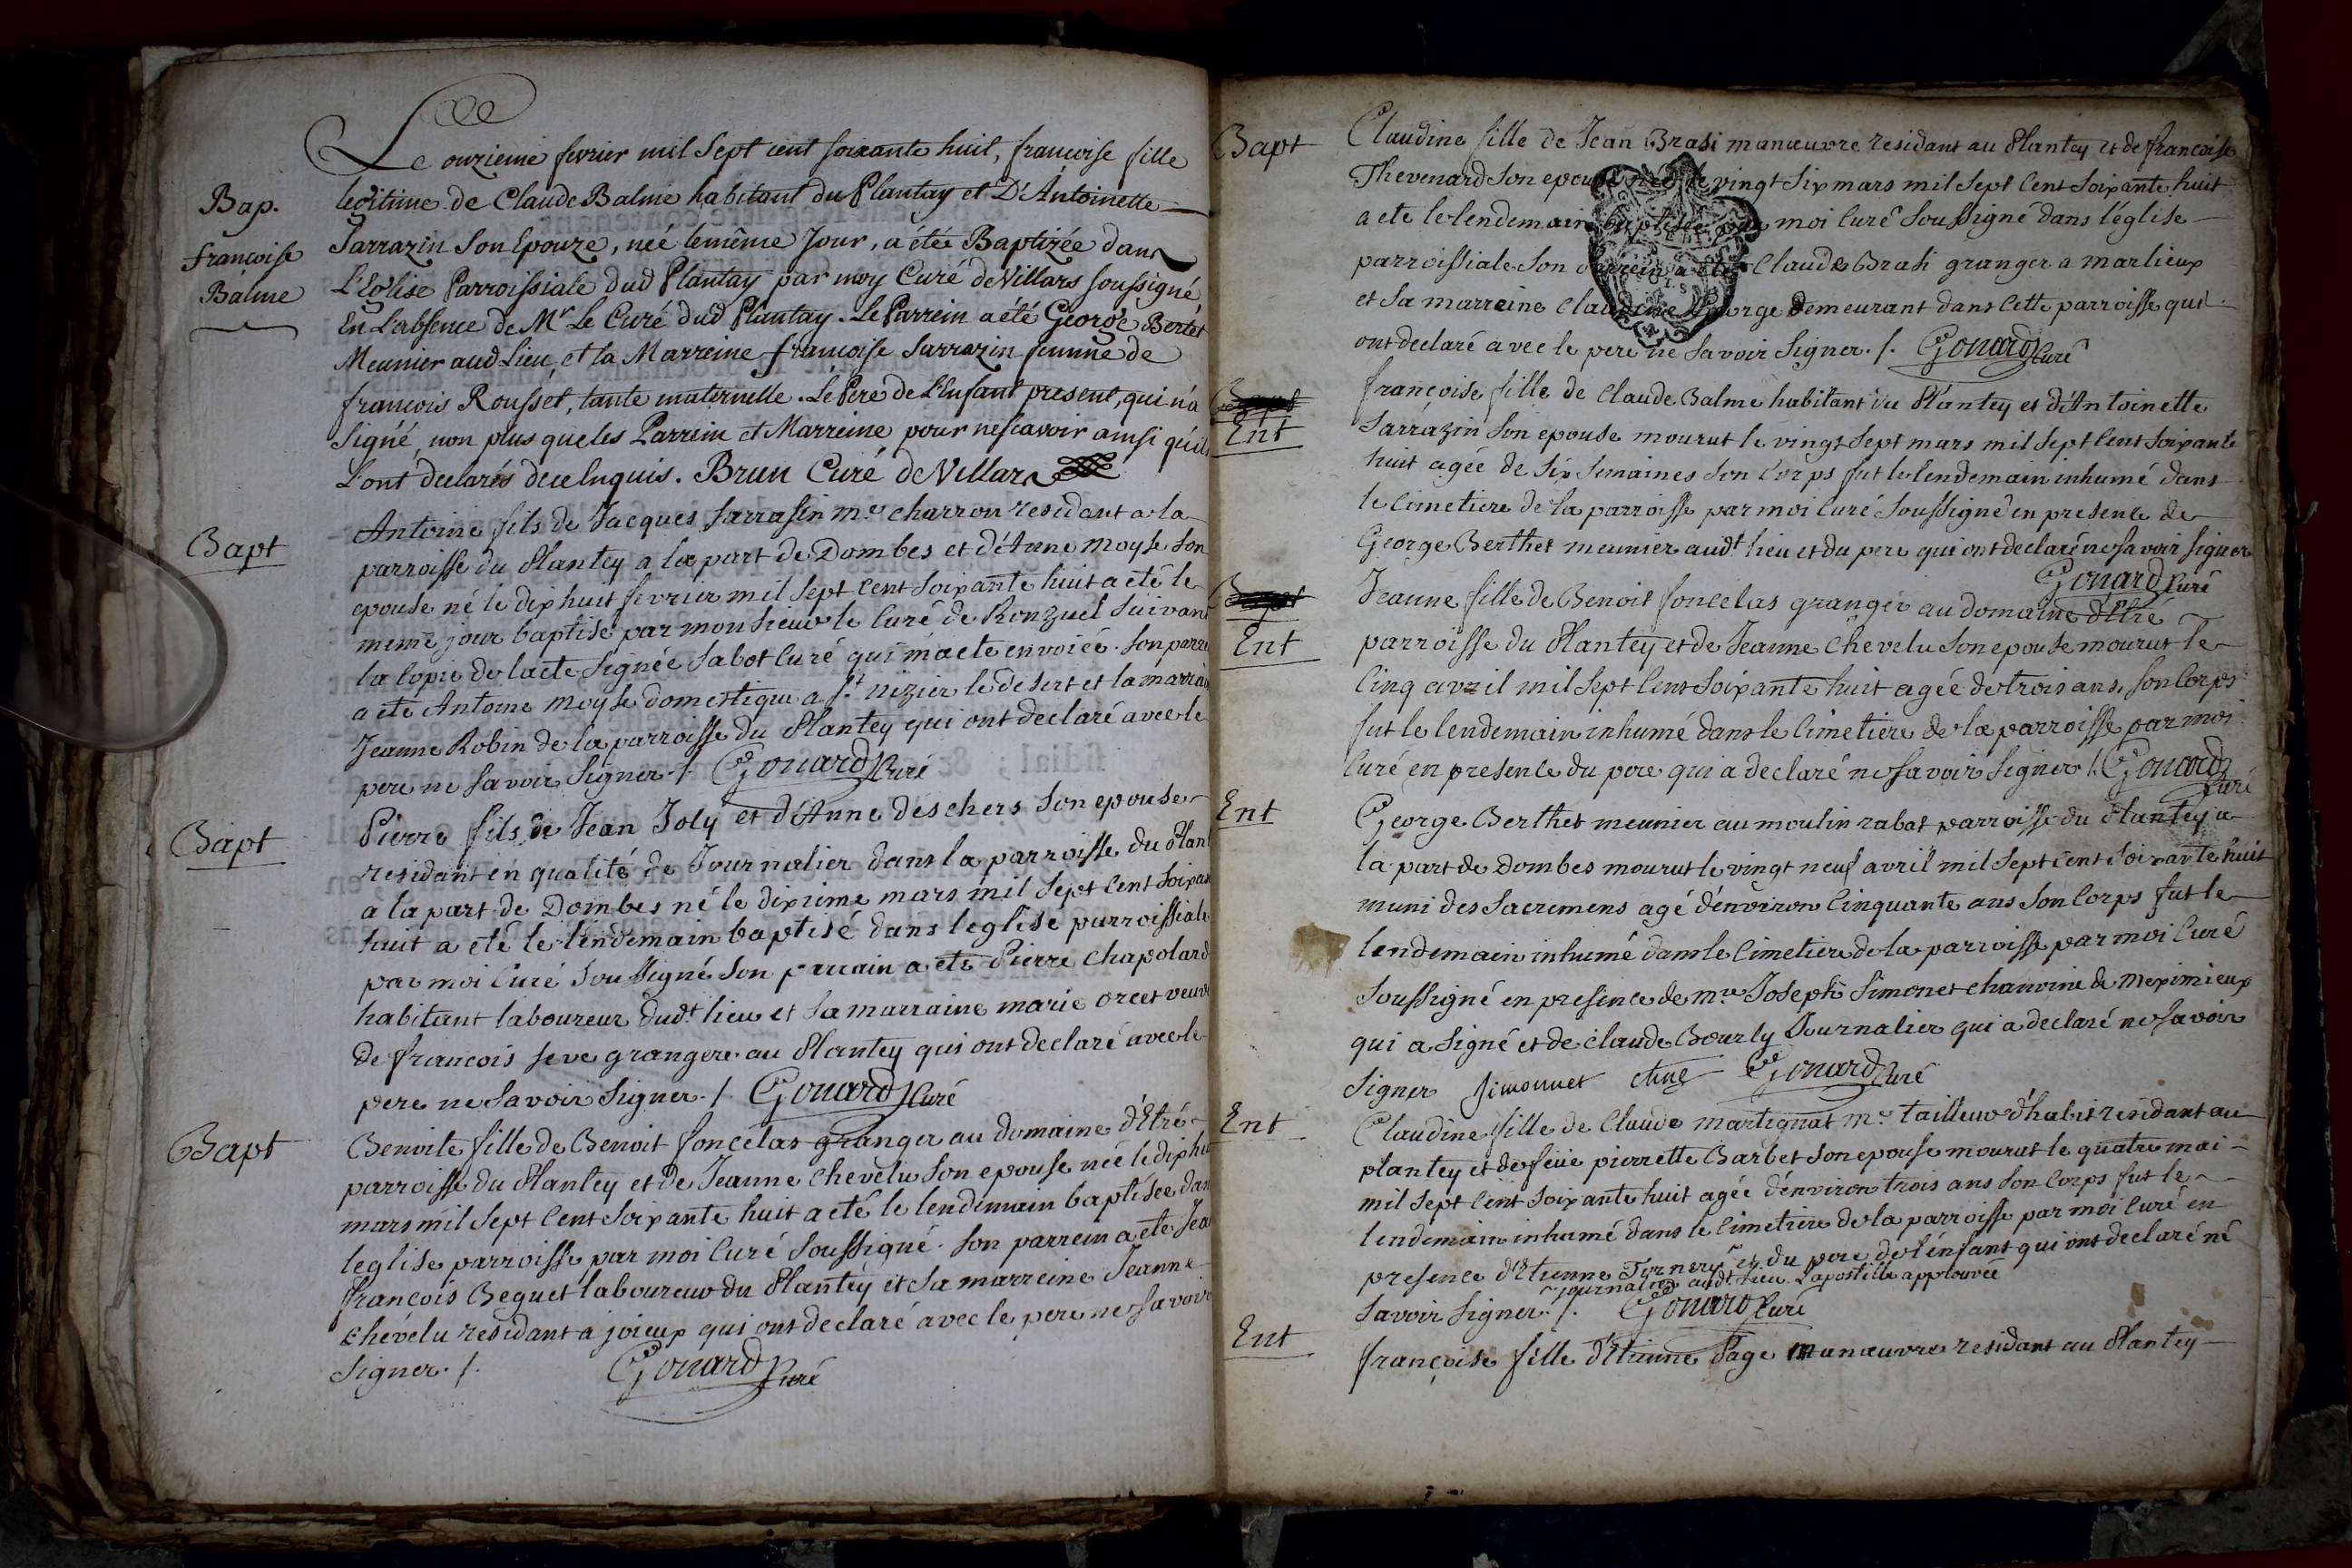 Le onzieme fevrier mil sept cent soixante huit, francoise fille
Bap.
legitime de Claude Balme habitant du Plantay et D'Antoinette
francoise
Sarrazin son Epouze, neé le même Jour, a étée Baptizée dans
Balme
L'Eglise Parroissiale dud Plantay par moy Curé de Villars soussigné,
En L'absence de Mr Le Curé dud Plantay. Le Parrein a été George Bertet
Meunier aud Lieu, et la Marreine francoise Sarrazin femme de
francois Rousset, tante maternelle. Le Pere de L'Enfant present, qui n'a
Signé, non plus que les Parrein et Marreine pour ne scavoir ainsi qu'ils
L'ont declarés de ce Enquis. Brun Curé de Villars
Bapt
Antoine fils de Jacques Sarrasin me charron residant a la
parroisse du Plantey a la part de Dombes et d'Anne Moyse son
epouse né le dix huit fevrier mil sept cent soixante huit a eté le
meme jour baptisé par monsieur le curé de Ronzuel suivant
la copie de lacte signée Sabot curé qui m'a ete envoiée. son parre
a ete Antoine Moyse domestique a st nizier le desert et la marrai
Jeanne Robin de la parroisse du Plantey qui ont declaré avec le
pere ne savoir signer ./. Gouard Curé
Bapt
Pierre fils de Jean Joly et d'Anne deschers son epouse
residant en qualité de Journalier dans la parroisse du Plant
a la part de Dombes né le dixieme mars mil sept cent soixan
huit a eté le lendemain baptisé dans leglise parroissiale
par moi curé soussigné son parrain a ete Pierre Chapolard
habitant laboureur dudt lieu et sa marraine marie orcet veuve
de francois seve grangere au Plantey qui ont declaré avec le
pere ne savoir signer ./. Gouard Curé
Bapt
Benoite fille de Benoit foncelas granger au domaine d'Etré
parroisse du Plantey et de Jeanne Chevelu son epouse née le dix hui
mars mil sept cent soixante huit a eté le lendemain baptisée dan
leglise parroisse par moi curé soussigné. son parrein a ete Jea
francois Beguet laboureur du Plantey et sa marreine Jeanne
Chevelu residant a joieux qui ont declaré avec le pere ne savoir
signer ./. Gouard Curé
Bapt
Claudine fille de Jean Brasi manœuvre residant au Plantey et de francoise
Thevenard son epouse née le vingt six mars mil sept cent soixante huit
a ete le lendemain baptisée par moi curé soussigné dans l'église
parroissiale son parrein a eté Claude Brasi granger a marlieux
et sa marreine Claudine George demeurant dans cette parroisse qui
ont declaré avec le pere ne savoir signer ./. Gouard Curé
Ent
françoise fille de Claude Balme habitant du Plantey et d'Antoinette
Sarrazin son epouse mourut le vingt sept mars mil sept cent soixante
huit agée de six semaines son corps fut le lendemain inhumé dans
le cimetiere de la parroisse par moi curé soussigné en presence de
George Berthet meunier audt lieu et du pere qui ont declaré ne savoir signer
Gouard Curé
Jeanne fille de Benoit foncelas granger au domaine d'Etré
Ent
parroisse du Plantey et de Jeanne Chevelu son epouse mourut le
cinq avril mil sept cent soixante huit agée de trois ans, son corps
fut le lendemain inhumé dans le cimetiere de la parroisse par moi
curé en presence du pere qui a declaré ne savoir signer ./. Gouard
Curé
Ent
George Berthet meunier au moulin rabat parroisse du Plantey a
la part de Dombes mourut le vingt neuf avril mil sept cent soixante huit
muni des sacremens agé d'environ cinquante ans son corps fut le
lendemain inhumé dans le cimetiere de la parroisse par moi curé
soussigné en presence de mre Joseph Simonet chanoine de meximieux
qui a signé et de claude Bourly Journalier qui a declaré ne savoir
signer Simonnet chne Gouard Curé
Ent
Claudine fille de Claude martignat me tailleur d'habit residant au
plantey et de feüe pierrette Barbet son epouse mourut le quatre mai
mil sept cent soixante huit agée d'environ trois ans son corps fut le
lendemain inhumé dans le cimetiere de la parroisse par moi curé en
presence d'Etienne et du pere de l'enfant qui ont declaré ne
journalier audt lieu. L'apostille approuvée
savoir signer ./. Gouard Curé
Ent
françoise fille d'Etienne Page manœuvre residant au Plantey